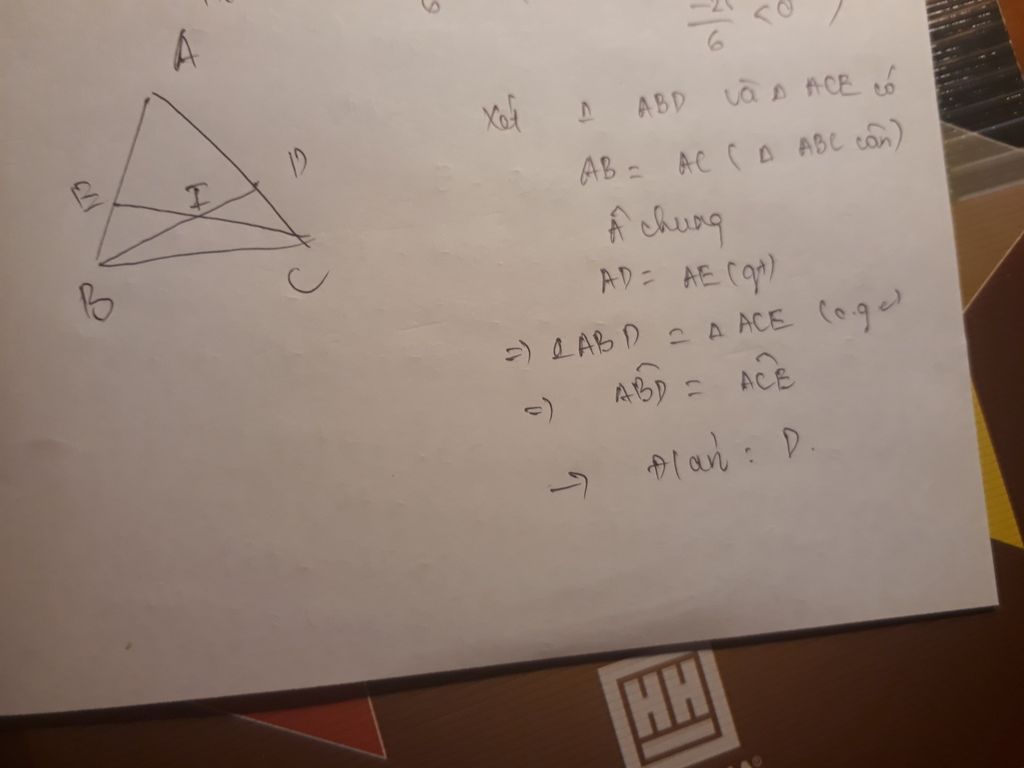 6
-21
6
< 0
)
A
E
I
D
B
C
Xét Δ ABD và Δ ACE có
AB = AC ( Δ ABC cân)
Â chung
AD = AE (gt)
=) Δ ABD = Δ ACE (c.g.c)
=) ABD = ACE
→ Đ/án : D.
HH